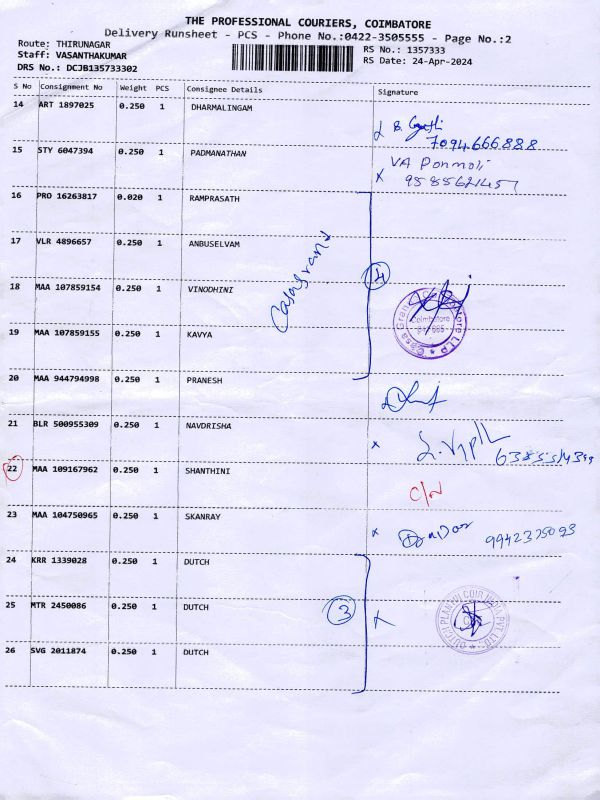 THE PROFESSIONAL COURIERS, COIMBATORE
Delivery Runsheet - PCS - Phone No.:0422-3505555 - Page No.:2
Route: THIRUNAGAR
Staff: VASANTHAKUMAR
DRS No.: DCJB135733302
RS No.: 1357333
RS Date: 24-Apr-2024
S No Consignment No Weight PCS Consignee Details Signature
14 ART 1897025 0.250 1 DHARMALINGAM
7094666888
15 STY 6047394 0.250 1 PADMANATHAN
VA Ponmoli
x 9585621457
16 PRO 16263817 0.020 1 RAMPRASATH
17 VLR 4896657 0.250 1 ANBUSELVAM
Casagrand
4
18 MAA 107859154 0.250 1 VINODHINI
19 MAA 107859155 0.250 1 KAVYA
20 MAA 944794998 0.250 1 PRANESH
21 BLR 500955309 0.250 1 NAVDRISHA
x
22 MAA 109167962 0.250 1 SHANTHINI
C/N
23 MAA 104750965 0.250 1 SKANRAY
x 9942375093
24 KRR 1339028 0.250 1 DUTCH
25 MTR 2450086 0.250 1 DUTCH
3
x
26 SVG 2011874 0.250 1 DUTCH